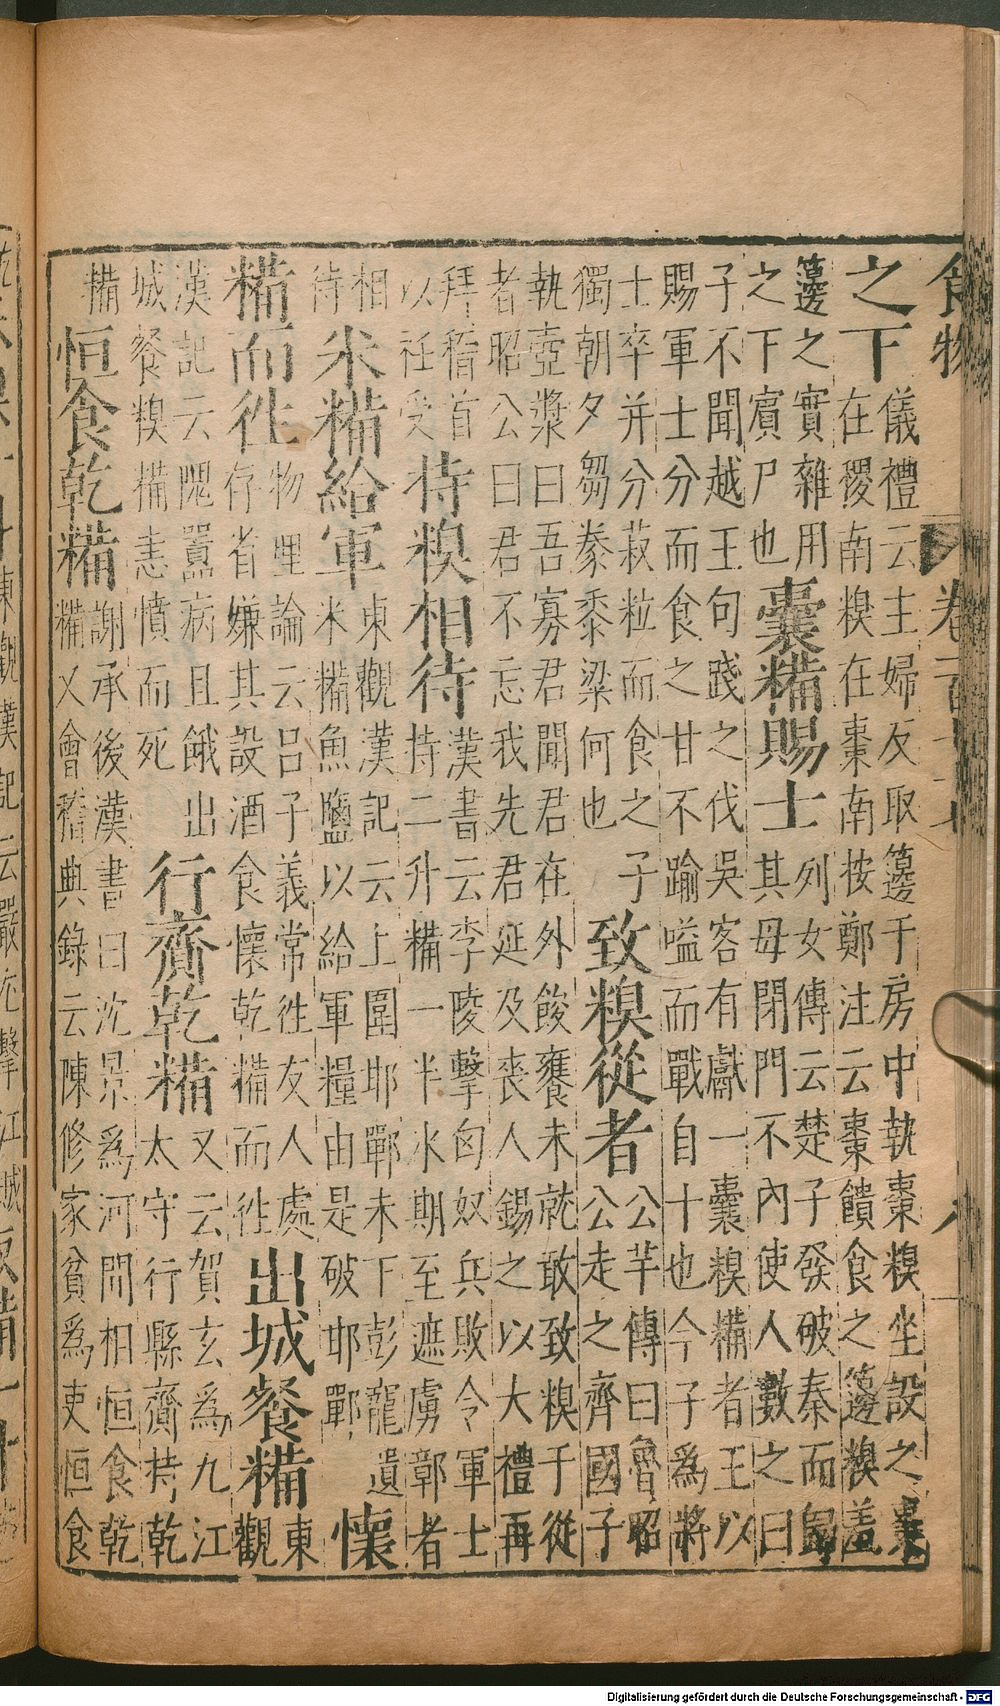 食物 卷 八
之下
儀禮云主婦反取籩于房中執棗糗坐設之棗
在稷南糗在棗南按鄭注云棗饋食之籩糗羞
籩之實雜用
之下賓尸也
囊糒賜士
列女傳云楚子發破秦而歸
其母閉門不內使人數之曰
子不聞越王句踐之伐吳客有獻一囊糗糒者王以
賜軍士分而食之甘不踰嗌而戰自十也今子為將
士卒并分菽粒而食之子
獨朝夕芻豢黍粱何也
致糗從者
公羊傳曰魯昭
公走之齊國子
執壺漿曰吾寡君聞君在外餕饔未就敢致糗于從
者昭公曰君不忘我先君延及喪人錫之以大禮再
拜稽首
以衽受
持糗相待
漢書云李陵擊匈奴兵敗令軍士
持二升糒一半冰期至遮虜鄣者
相
待
米糒給軍
東觀漢記云上圍邯鄲未下彭寵遺
米糒魚鹽以給軍糧由是破邯鄲
懷
糒而往
物理論云呂子義常往友人處
存省嫌其設酒食懷乾糒而往
出城餐糒
東
觀
漢記云隗囂病且餓出
城餐糗糒恚憤而死
行齎乾糒
又云賀玄為九江
太守行縣齎持乾
糒
恒食乾糒
謝承後漢書曰沈景為河間相恒食乾
糒又會稽典錄云陳修家貧為吏恒食
Digitalisierung gefördert durch die Deutsche Forschungsgemeinschaft - DFG